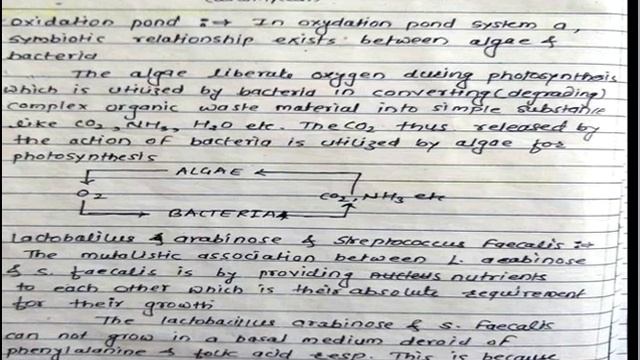 Oxidation pond :→ In oxydation pond system a,
symbiotic relationship exists between algae &
bacteria
The algae liberate oxygen during photosynthesis
which is utilized by bacteria in converting (degrading)
complex organic waste material into simple substance
like CO2, NH3, H2O etc. The CO2 thus released by
the action of bacteria is utilized by algae for
photosynthesis
ALGAE
O2 CO2, NH3 etc
BACTERIA
Lactobalilus & arabinose & Streptococcus Faecalis :→
The mutalistic association between L. arabinose
& S. faecalis is by providing nutrients
to each other which is their absolute requirement
for their growth
The lactobacillus arabinose & S. Faecalis
can not grow in a basal medium deroid of
phenylalanine & folic acid resp. This is because